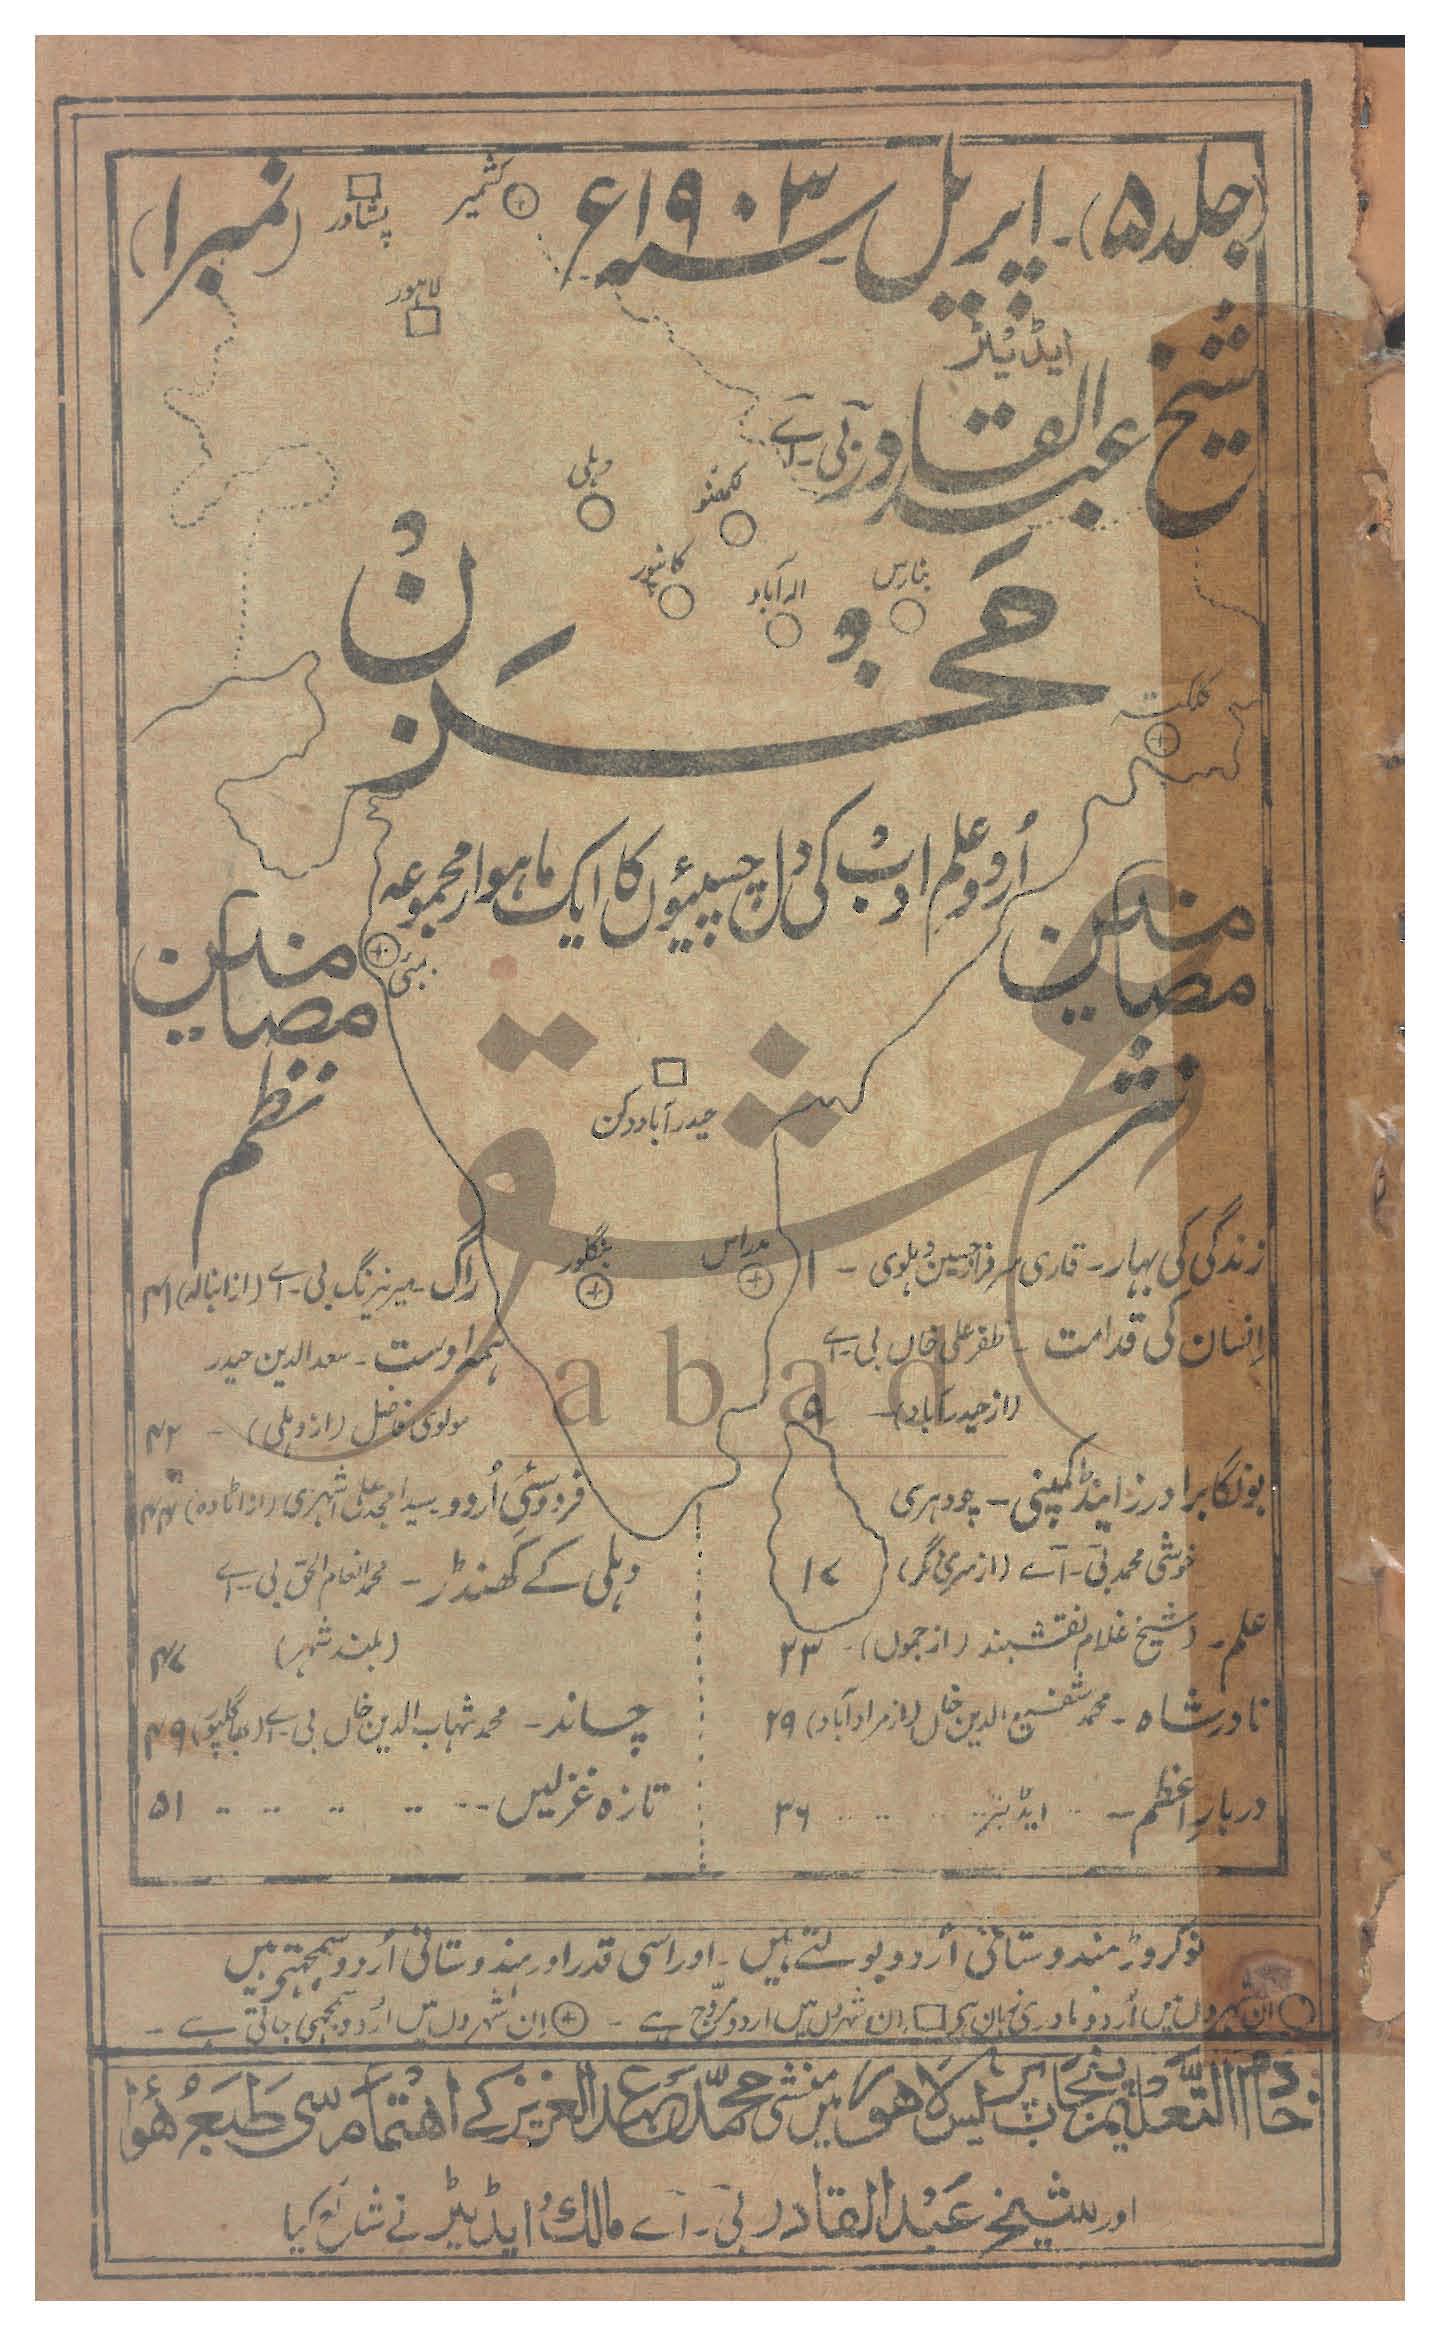 (جلد ۵)۔ اپریل سنہ ۱۹۰۳ء (نمبر ۱)
کشمیر
پشاور
لاہور
ایڈیٹر
شیخ عبدالقادر بی۔ اے
دہلی
لکھنؤ
کانپور
الہ آباد
بنارس
کلکتہ
مخزن
اُردو علم و ادب کی دل چسپیوں کا ایک ماہوار مجموعہ
بمبئی
حیدرآباد دکن
مدراس
بنگلور
مضامین نثر
زندگی کی بہار۔ قاری سرفراز حسین دہلوی ۔ ۱
اِنسان کی قدامت ۔ ظفر علی خاں بی۔ اے
(از حیدرآباد)۔ ۹
بونگا برادرز اینڈ کمپنی۔ چودہری
خوشی محمد بی۔ اے (از سری نگر) ۱۷
علم۔ (شیخ غلام نقشبند (از جموں)۔ ۲۳
نادر شاہ۔ محمد شفیع الدین خاں (از مرادآباد) ۲۹
دربار اعظم۔ ایڈیٹر ۳۶
مضامین نظم
راگ۔ میر نیرنگ بی۔ اے (از انبالہ) ۴۱
ہمہ اوست۔ سعد الدین حیدر
مولوی فاضل (از دہلی) ۔ ۴۲
فردوسئ اُردو۔ سید امجد علی اشہری (از اٹاوہ) ۴۴
دہلی کے کھنڈر۔ محمد انعام الحق بی۔ اے
(بلند شہر) ۴۷
چاند۔ محمد شہاب الدین خاں بی۔ اے (بھاگلپور) ۴۹
تازہ غزلیں ۵۱
نو کروڑ ہندوستانی اُردو بولتے ہیں۔ اور اسی قدر اور ہندوستانی اُردو سمجھتے ہیں
○ ان شہروں میں اُردو مادری زبان ہے □ اِن شہروں میں اردو مروّج ہے ۔ ⊕ اِن شہروں میں اُردو سمجھی جاتی ہے ۔
خادم التعلیم پنجاب پریس لاہور میں منشی محمد عبدالعزیز کے اہتمام سے طبع ہُوا
اور شیخ عبدالقادر بی۔ اے مالک و ایڈیٹر نے شائع کیا
عشق
abad